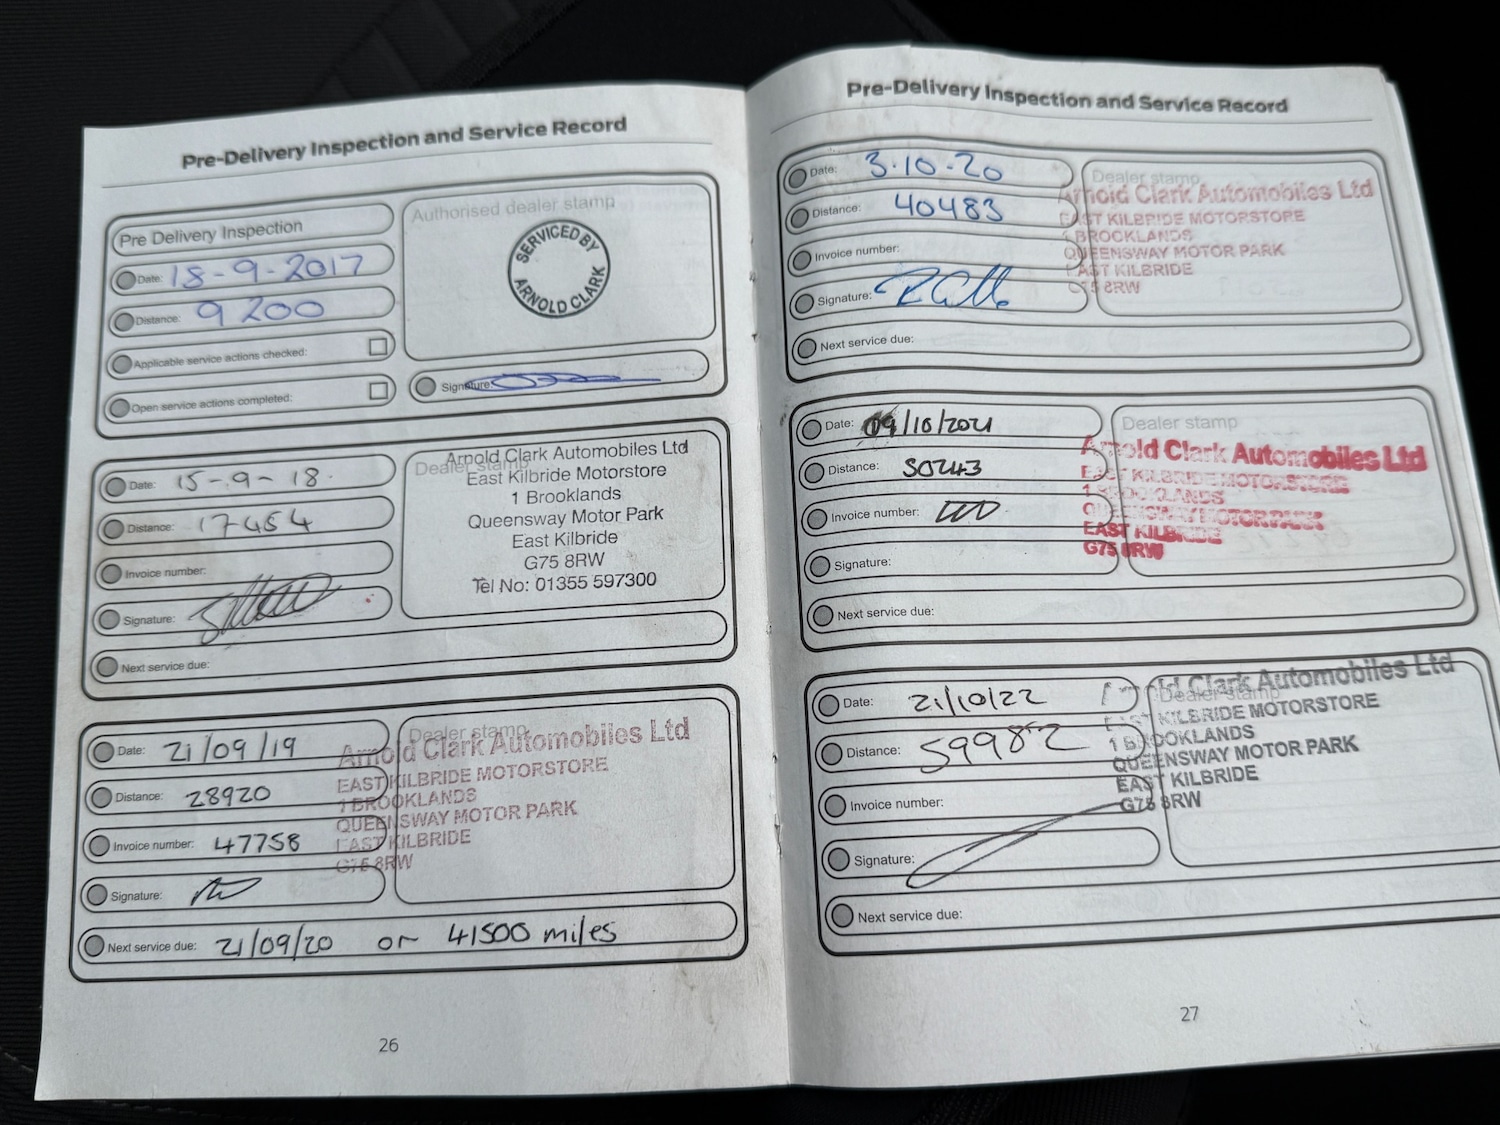 Pre-Delivery Inspection and Service Record
Pre Delivery Inspection
Date: 18-9-2017
Distance: 9200
Applicable service actions checked:
Open service actions completed:
Authorised dealer stamp
SERVICED BY
ARNOLD CLARK
Signature:
Date: 15-9-18.
Distance: 17454
Invoice number:
Signature:
Next service due:
Dealer stamp
Arnold Clark Automobiles Ltd
East Kilbride Motorstore
1 Brooklands
Queensway Motor Park
East Kilbride
G75 8RW
Tel No: 01355 597300
Date: 21/09/19
Distance: 28920
Invoice number: 47758
Signature:
Next service due: 21/09/20 or 41500 miles
Dealer stamp
Arnold Clark Automobiles Ltd
EAST KILBRIDE MOTORSTORE
1 BROOKLANDS
QUEENSWAY MOTOR PARK
EAST KILBRIDE
G75 8RW
26
Pre-Delivery Inspection and Service Record
Date: 3.10.20
Distance: 40483
Invoice number:
Signature:
Next service due:
Dealer stamp
Arnold Clark Automobiles Ltd
EAST KILBRIDE MOTORSTORE
1 BROOKLANDS
QUEENSWAY MOTOR PARK
EAST KILBRIDE
G75 8RW
Date: 09/10/2021
Distance: 50243
Invoice number:
Signature:
Next service due:
Dealer stamp
Arnold Clark Automobiles Ltd
EAST KILBRIDE MOTORSTORE
1 BROOKLANDS
QUEENSWAY MOTOR PARK
EAST KILBRIDE
G75 8RW
Date: 21/10/22
Distance: 59982
Invoice number:
Signature:
Next service due:
Dealer stamp
Arnold Clark Automobiles Ltd
EAST KILBRIDE MOTORSTORE
1 BROOKLANDS
QUEENSWAY MOTOR PARK
EAST KILBRIDE
G75 8RW
27